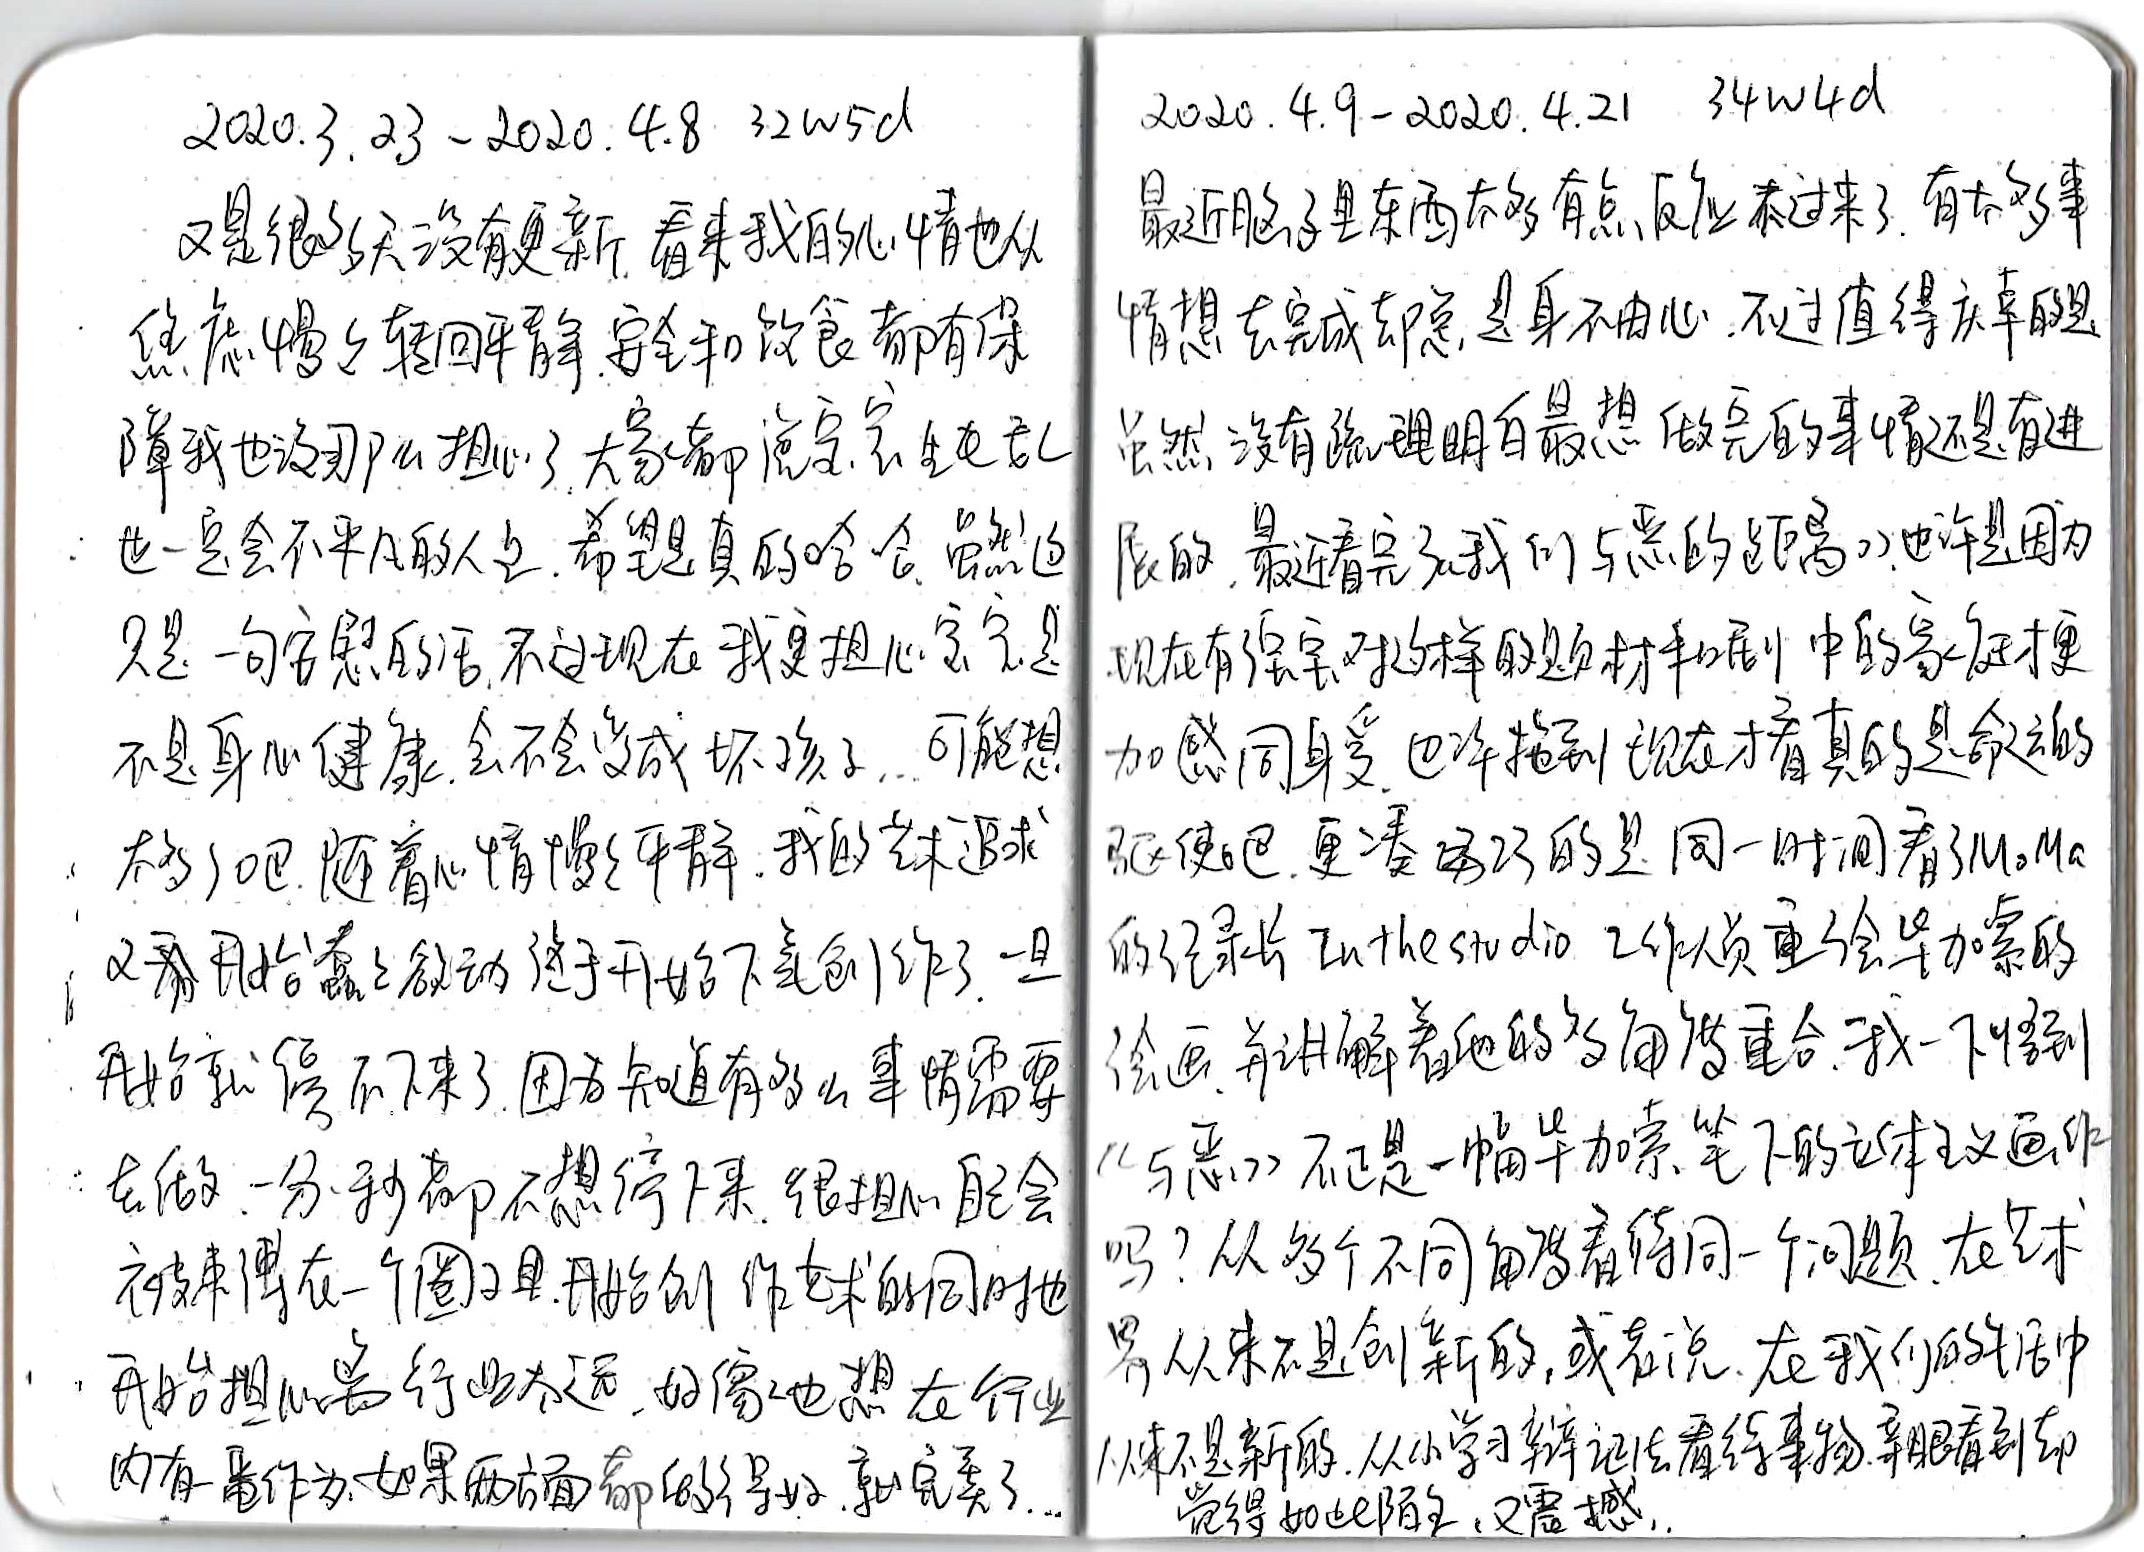 2020.3.23-2020.4.8 32w5d
又是很多天没有更新.看来我的心情也从
焦虑慢慢转回平静.安全和饮食都有保
障我也没那么担心了.大家都说宝宝生在乱
世一定会不平凡的人生.希望是真的哈哈.虽然这
只是一句安慰的话.不过现在我更担心宝宝是
不是身心健康.会不会变成坏孩子...可能想
太多了吧.随着心情慢慢平静.我的艺术追求
又开始蠢蠢欲动终于开始下笔创作了.一旦
开始就停不下来了.因为知道有多么事情需要
去做.一分一秒都不想停下来.很担心自己会
被束缚在一个圈子里.开始创作艺术的同时也
开始担心离行业太远.好像也想在行业
内有一番作为.如果两方面都做得好.就完美了...
2020.4.9-2020.4.21 34w4d
最近脑子里东西太多有点反应不过来了.有太多事
情想去完成却总是身不由心.不过值得庆幸的是
虽然没有疏理明白最想做完的事情还是有进
展的.最近看完了《我们与恶的距离》.也许是因为
现在有宝宝.对这样的题材和剧中的家庭才更
加感同身受.也许拖到现在才看真的是命运的
驱使吧.更凑巧的是同一时间看了MoMa
的纪录片 In the studio 工作人员重绘毕加索的
绘画.并讲解着他的多角度重合.我一下悟到
《与恶》不正是一幅毕加索笔下的立体主义画作
吗?从多个不同角度看待同一个问题.在艺术
界从来不是创新的,或者说.在我们的生活中
从来不是新的.从小学习辩证法看待事物.亲眼看到却
觉得如此陌生,又震撼..